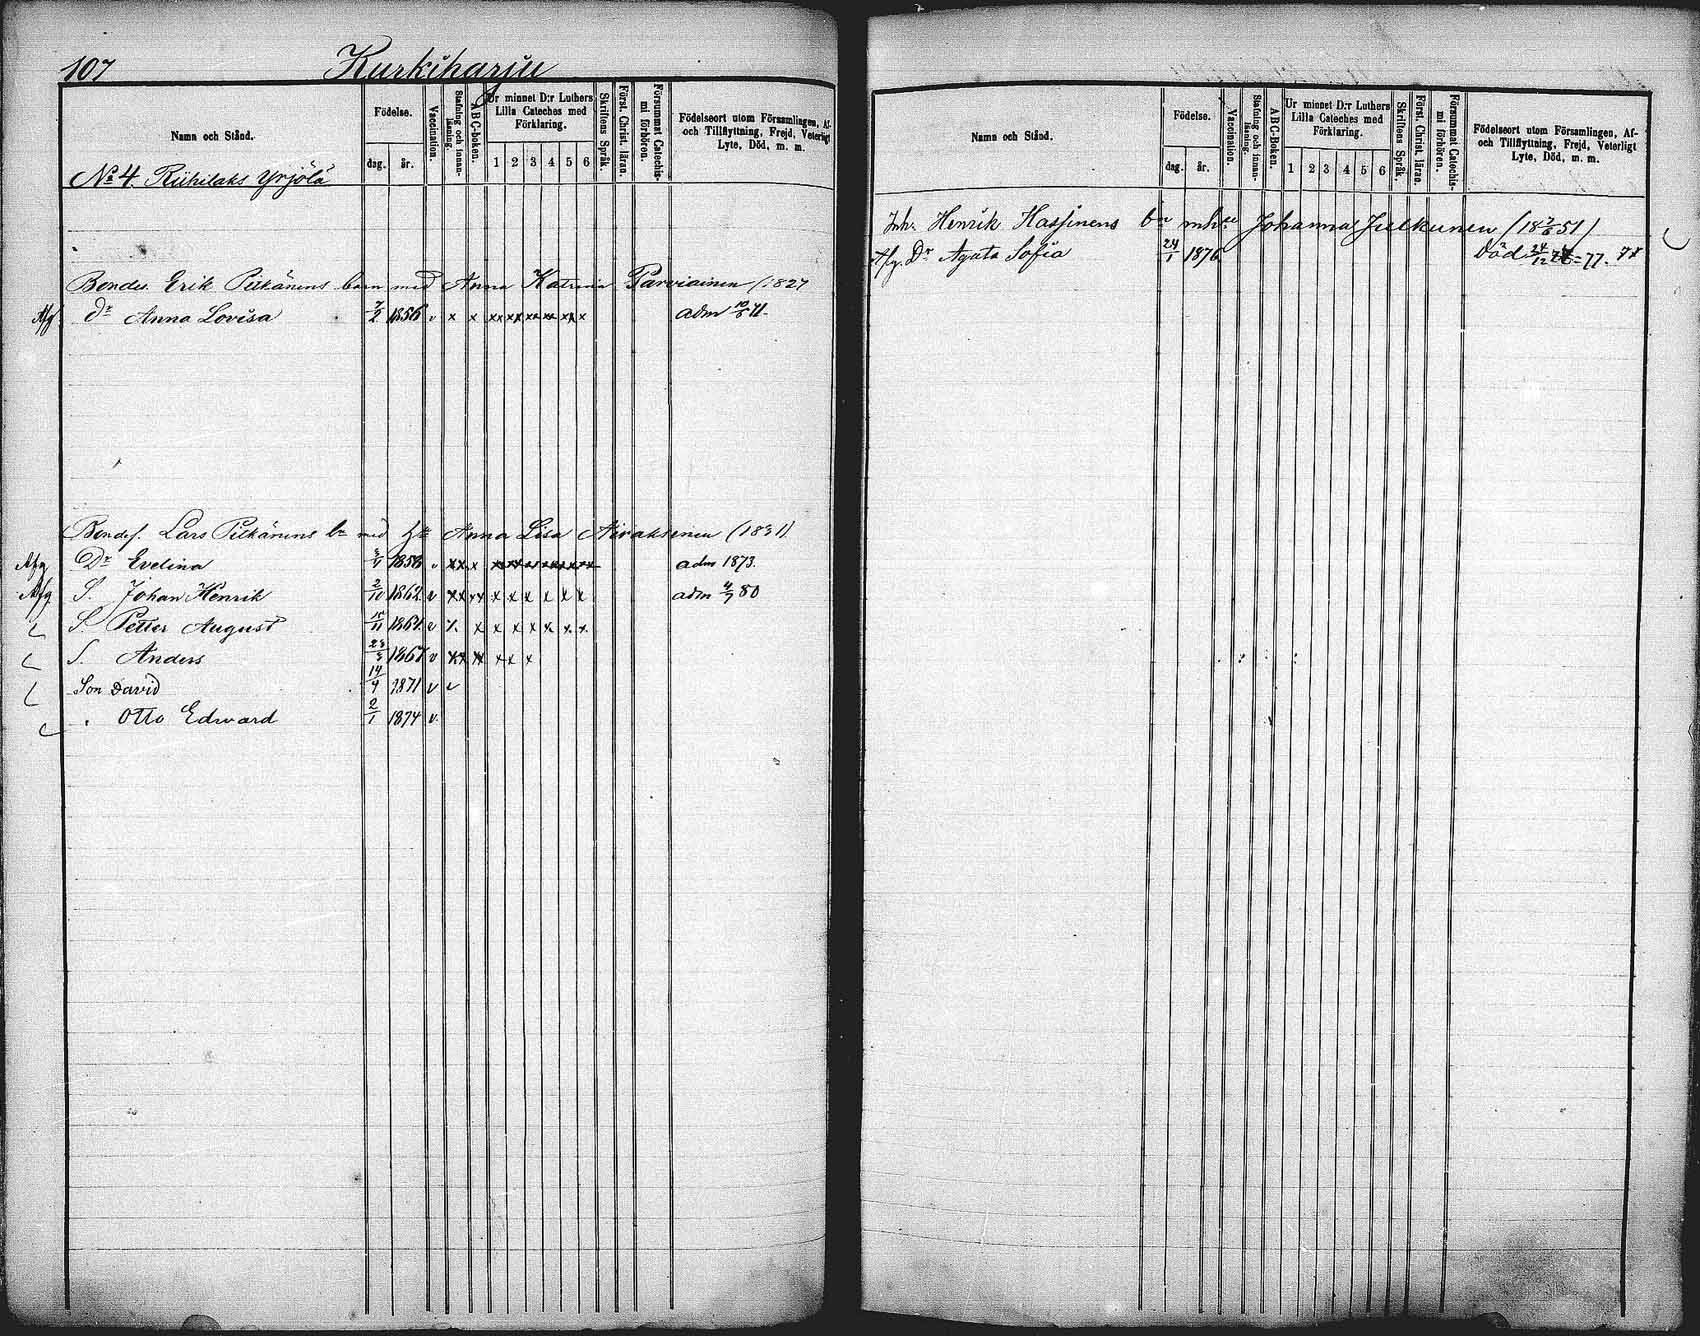 107 Kurkiharju
Namn och Stånd.
Födelse.
dag. år.
Vaccination.
Stafning och innanläsning.
ABC-boken.
Ur minnet D:r Luthers Lilla Cateches med Förklaring.
1 2 3 4 5 6
Skriftens Språk.
Först. Christ. läran.
Försummat Catechismi förhören.
Födelseort utom Församlingen, Af- och Tillflyttning, Frejd, Veterligt Lyte, Död, m. m.
No 4. Riihilaks Yrjölä
Erik Pitkänens barn med Anna Katrina Parviainen (1827
Afg Dr Anna Lovisa 1856 v x x xx xx xx xx x x adm 71.
Lars Pitkänens bn med Anna Lisa (1831)
Afg Dr Evelina 1858 v xx x adm 1873.
Afg S. Johan Henrik 2/10 1862 v xx xx x x x x x x adm 80
S. Petter August 15/11 1864 v x x x x x x x x
S. Anders 1867 v xx xx x x x
Son David 14/9 1871 v v
" Otto Edward 2/1 1874 v
Namn och Stånd.
Födelse.
dag. år.
Vaccination.
Stafning och innanläsning.
ABC-Boken.
Ur minnet D:r Luthers Lilla Cateches med Förklaring.
1 2 3 4 5 6
Skriftens Språk.
Först. Christ. läran.
Försummat Catechismi förhören.
Födelseort utom Församlingen, Af- och Tillflyttning, Frejd, Veterligt Lyte, Död, m. m.
Inh. Henrik Hassinens bn Johanna Julkunen (18 51)
Afg. Dr Agata Sofia 24/1 1876 Död 24/12 77.